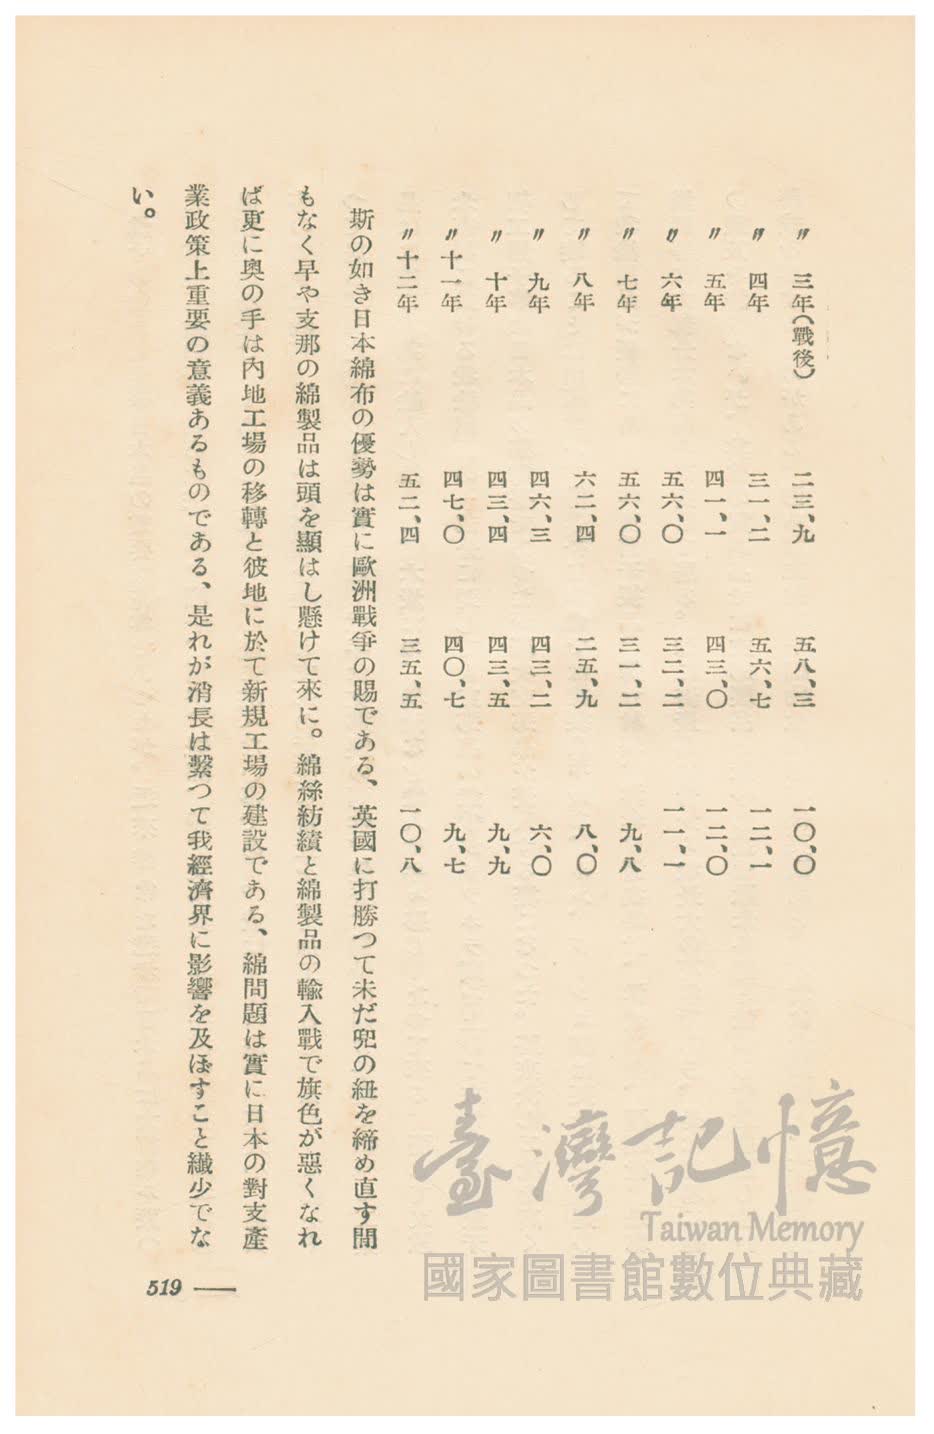 〃 三年(戰後) 二三、九 五八、三 一〇、〇
〃 四年 三一、二 五六、七 一二、一
〃 五年 四一、一 四三、〇 一二、〇
〃 六年 五六、〇 三二、二 一一、一
〃 七年 五六、〇 三一、二 九、八
〃 八年 六二、四 二五、九 八、〇
〃 九年 四六、三 四三、二 六、〇
〃 十年 四三、四 四三、五 九、九
〃 十一年 四七、〇 四〇、七 九、七
〃 十二年 五二、四 三五、五 一〇、八
斯の如き日本綿布の優勢は實に歐洲戰爭の賜である、英國に打勝つて未だ兜の紐を締め直す間
もなく早や支那の綿製品は頭を顯はし懸けて來に。綿絲紡績と綿製品の輸入戰で旗色が惡くなれ
ば更に奧の手は內地工場の移轉と彼地に於て新規工場の建設である、綿問題は實に日本の對支產
業政策上重要の意義あるものである、是れが消長は繫つて我經濟界に影響を及ぼすこと纎少でな
い。
519
臺灣記憶
Taiwan Memory
國家圖書館數位典藏